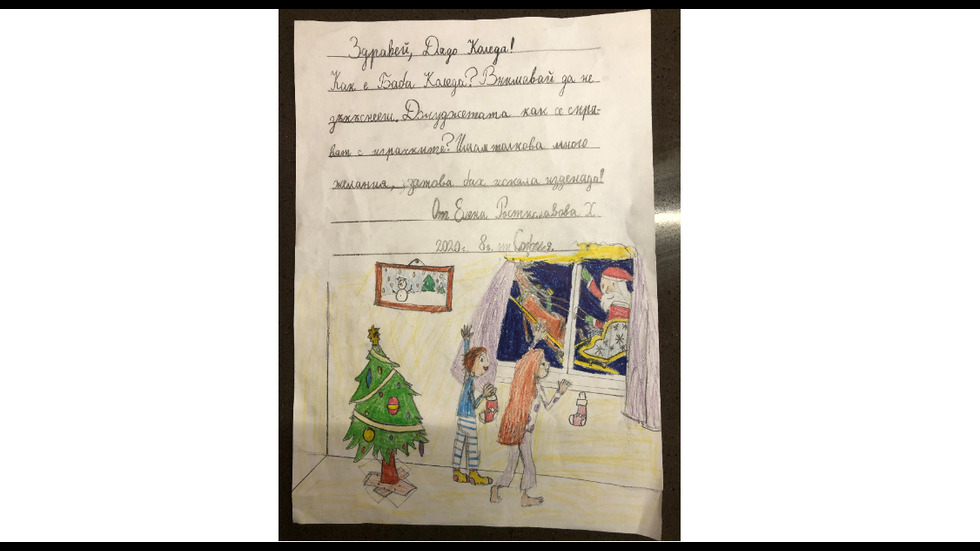 Здравей, Дядо Коледа!
Как е Баба Коледа? Внимавай да не
закъснееш. Джуджетата как се спра-
вят с играчките? Имам толкова много
желания, затова бих искала изненада!
От Елена Ростиславова Х.
2020г. 8г. София.